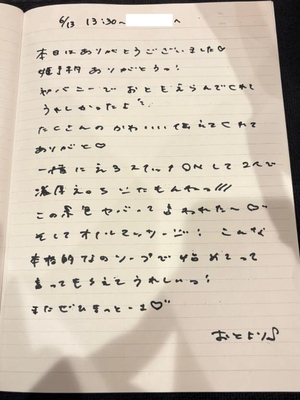 6/13 13:30〜 へ
本日はありがとうございました♡
指名 ありがとうっ!
ヤバニーで おともえらんでくれて
うれしかったよ
たくさんの かわいい 伝えてくれて
ありがと♡
一緒に えろスイッチONして 2人で
濃厚えろえろ
この景色ヤバって言われた〜♡
そして オイルマッサージ! こんな
本格的なのソープで 始めてって
言ってもらえて うれしいっ!
またぜひ きっとーま♡
おとより♪